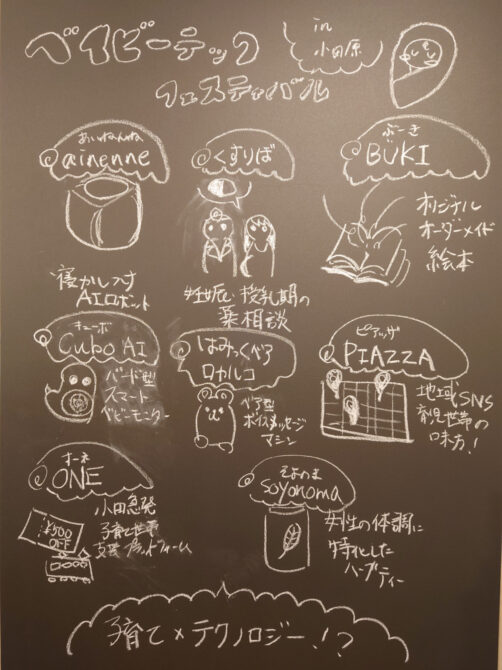 ベイビーテック
in
小田原
フェスティバル
あいねんね
ainenne
くすりば
ぶーき
BŪKI
オリジナル
オーダーメイド
絵本
寝かしつけ
AIロボット
妊娠・授乳期の
薬相談
キューボ
Cubo AI
バード型
スマート
ベビーモニター
はみっくベア
ロカルコ
ベア型
ボイスメッセージ
マシン
ピアッザ
PIAZZA
地域SNS
育児世帯の
味方!
ONE
¥500
OFF
小田急発
子育て世帯
支援プラットフォーム
そよのま
soyonoma
女性の体調に
特化した
ハーブ
ティー
子育て×テクノロジー!?